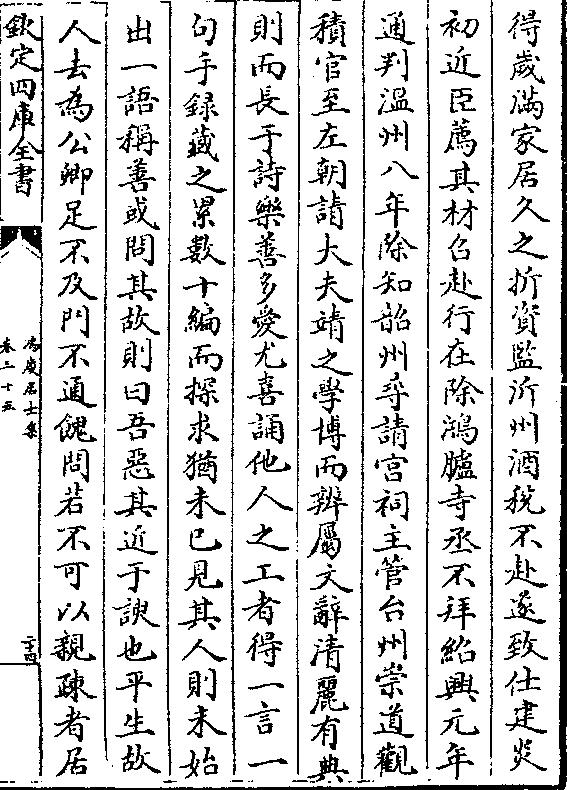 得歲滿家居久之折資監沂州酒稅不赴遂致仕建炎
初近臣薦其材召赴行在除鴻臚寺丞不拜紹興元年
通判溫州八年除知韶州尋請宮祠主管台州崇道觀
積官至左朝請大夫靖之學博而辨屬文辭清麗有典
則而長于詩樂善多愛尤喜誦他人之工者得一言一
句手錄藏之累數十編而探求猶未已見其人則未始
出一語稱善或問其故則曰吾惡其近于諛也平生故
人去為公卿足不及門不通餽問若不可以親疎者居
欽定四庫全書
鴻慶居士集
卷三十五
二十四